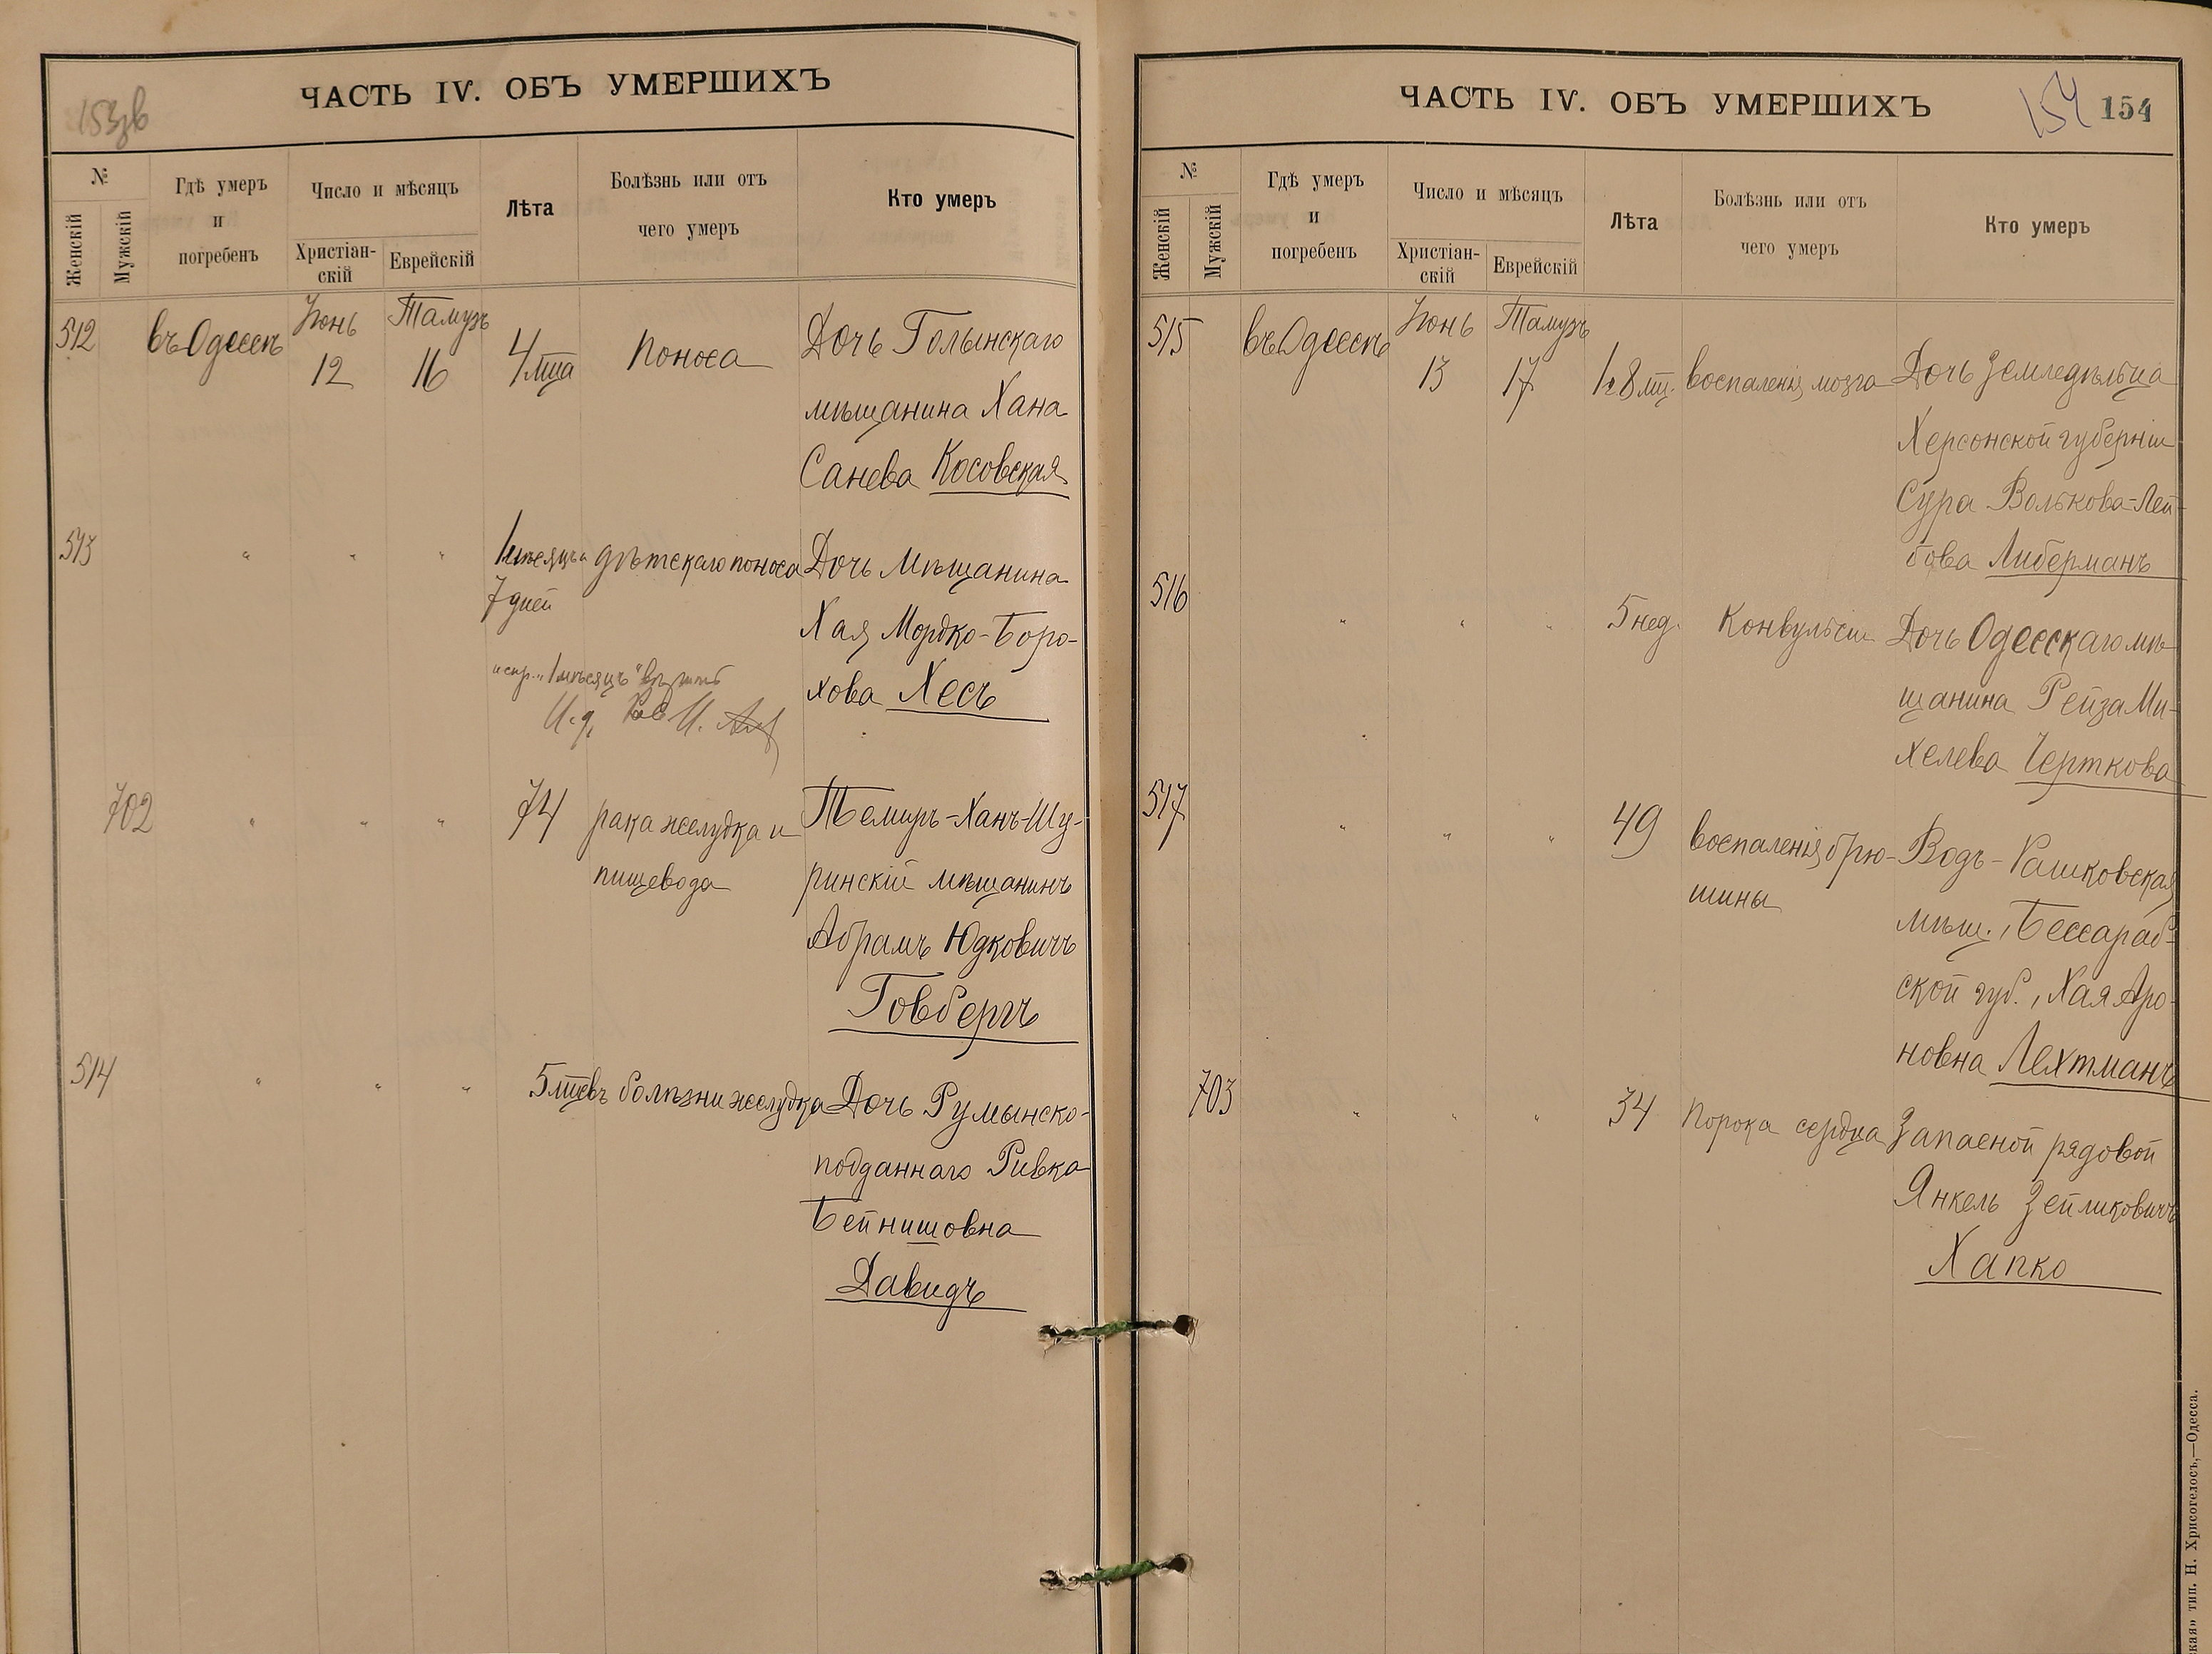 153 в
ЧАСТЬ IV. ОБЪ УМЕРШИХЪ
№
Женскій
Мужскій
Гдѣ умеръ
и
погребенъ
Число и мѣсяцъ
Христіан-
скій
Еврейскій
Лѣта
Болѣзнь или отъ
чего умеръ
Кто умеръ
512 въ Одессѣ Іюнь 12 Тамузъ 16 4 м-ца поноса Дочь Голынскаго
мѣщанина Хана
Санева Косовская
513 " " " 1 мѣсяцъ дѣтскаго поноса Дочь Мѣщанина
7 дней
Хая Мордко-Боро-
испр. "1 мѣсяцъ"
хова Хесъ
И. д.
702 " " " 74 рака желудка и Темиръ-Ханъ-Шу-
пищевода ринскій мѣщанинъ
Абрамъ Юдковичъ
Говбергъ
514 " " " 5 м-цевъ болѣзни желудка Дочь Румынско-
подданнаго Ривка
Бейнишовна
Давидъ
ЧАСТЬ IV. ОБЪ УМЕРШИХЪ
154 154
№
Женскій
Мужскій
Гдѣ умеръ
и
погребенъ
Число и мѣсяцъ
Христіан-
скій
Еврейскій
Лѣта
Болѣзнь или отъ
чего умеръ
Кто умеръ
515 въ Одессѣ Іюнь 13 Тамузъ 17 1 г. 8 м-ц. воспаленія мозга Дочь Земледѣльца
Херсонской губерніи
Сура Волькова-Лей-
бова Либерманъ
516 " " " 5 нед. Конвульсіи Дочь Одесскаго мѣ-
щанина Рейза Ми-
хелева Черткова
517 " " " 49 воспаленія брю- Водъ-Рашковская
шины мѣщ., Бессараб-
ской губ., Хая Аро-
новна Лехтманъ
703 " " " 34 Порока сердца Запасной рядовой
Янкель Зейликовичъ
Хапко
кая» тип. Н. Хрисогелосъ,—Одесса.